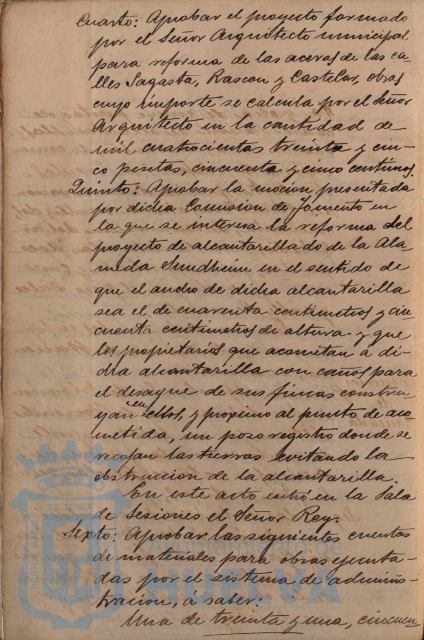 Cuarto: Aprobar el proyecto formado
por el Señor Arquitecto municipal
para reforma de las aceras de las ca-
lles Sagasta, Rascon y Castelar, obras
cuyo importe se calcula por el Señor
Arquitecto en la cantidad de
mil cuatrocientas treinta y cin-
co pesetas, cincuenta y cinco centimos.
Quinto: Aprobar la mocion presentada
por dicha Comision de Fomento en
la que se interesa la reforma del
proyecto de alcantarillado de la Ala-
meda Sundheim en el sentido de
que el ancho de dicha alcantarilla
sea el de cuarenta centimetros y cin-
cuenta centimetros de altura y que
los propietarios que acometan á di-
cha alcantarilla con caños para
el desague de sus fincas constru-
yan en ellos, y proximo al punto de aco-
metida, un pozo registro donde se
recojan las tierras evitando la
obstruccion de la alcantarilla.
En este acto entró en la Sala
de Sesiones el Señor Rey.
Sexto: Aprobar las siguientes cuentas
de materiales para obras ejecuta-
das por el sistema de adminis-
tracion, á saber:
Una de treinta y una, cincuen